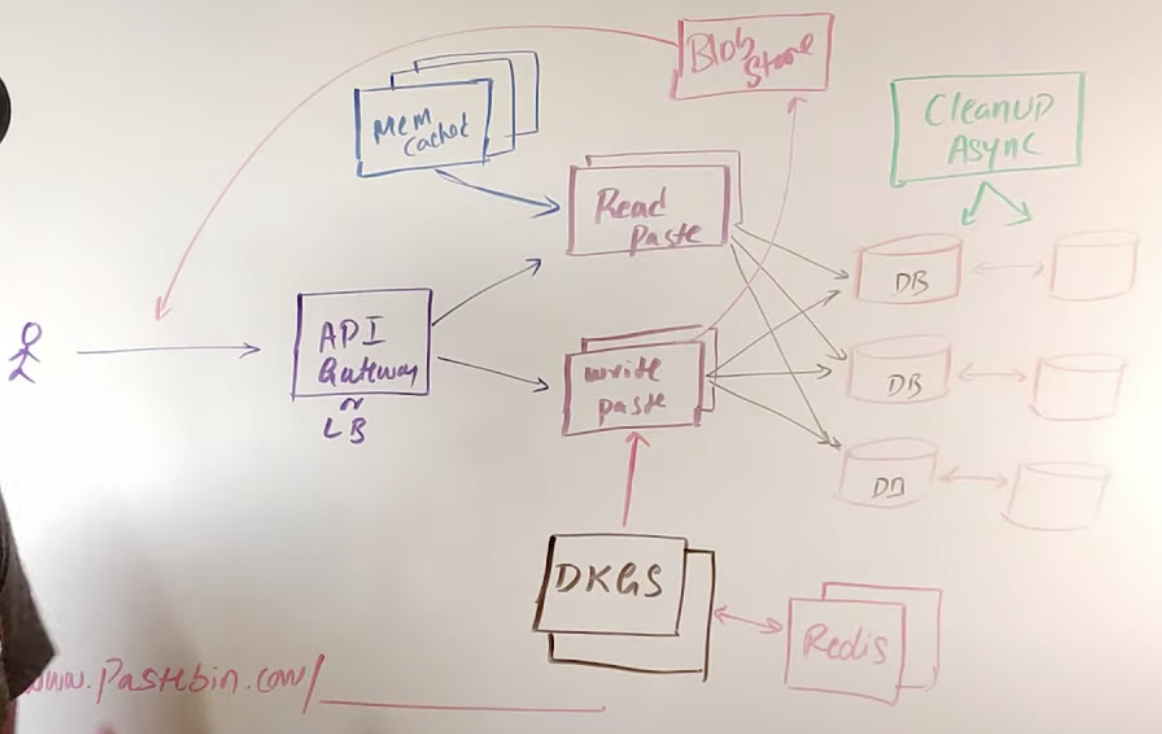 Blob
Store
Mem
Cached
Cleanup
Async
Read
Paste
DB
API
Gateway
or
LB
write
paste
DB
DB
DKGS
Redis
www.Pastebin.com/